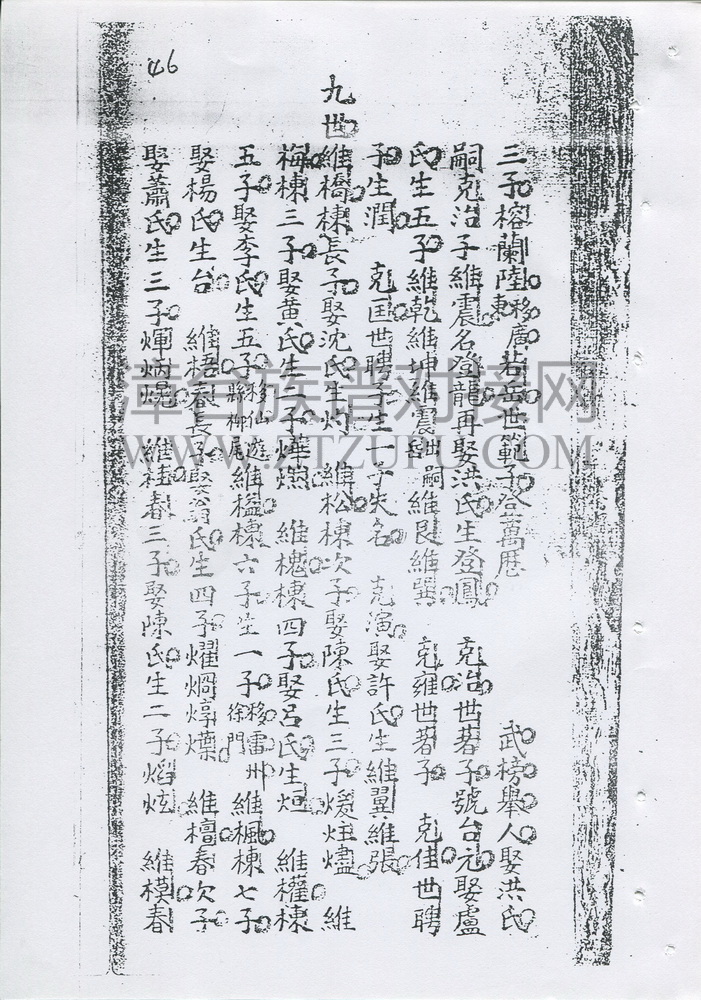 46
三子榕蘭陸移廣東若岳世範子登萬歷 武榜舉人娶洪氏
嗣克治子維震名登龍再娶洪氏生登鳳 克治世著子號台元娶盧
氏生五子維乾維坤維震出嗣維艮維巽 克雍世著子 克佳世聘
子生潤 克匡世聘子生一子失名 克演娶許氏生維翼維張
九世
維橋棟長子娶沈氏生灼 維松棟次子娶陳氏生三子煖炷燼 維
梅棟三子娶黃氏生二子燁爛 維槐棟四子娶呂氏生烜 維權棟
五子娶李氏生五子移仙遊縣柳尾維楹棟六子生一子移雷州徐門 維楓棟七子
娶楊氏生台 維梧春長子娶翁氏生四子燿炯焞爍 維檀春次子
娶蕭氏生三子煇炳焜 維桂春三子娶陳氏生二子熖炫 維模春
章台族谱对接网
WWW.ZTZUPU.COM